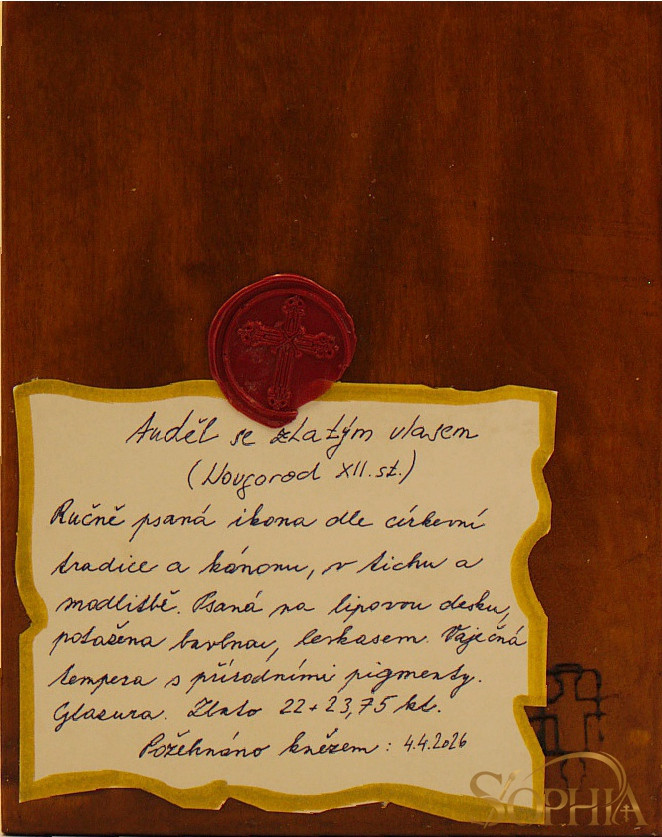 Anděl se zlatým vlasem
(Novgorod XII. st.)
Ručně psaná ikona dle církevní
tradice a kánonu, v tichu a
modlitbě. Psaná na lipovou desku,
potažena bavlnou, levkasem. Vaječná
tempera s přírodními pigmenty.
Glazura. Zlato 22+23,75 kt.
Požehnáno knězem: 4.4.2026
SOPHIA